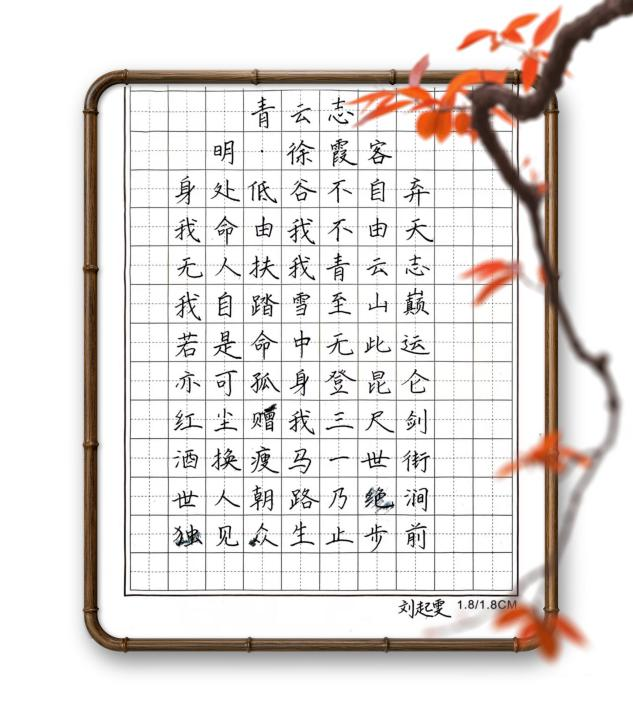 青云志
明·徐霞客
身处低谷不自弃
我命由我不由天
无人扶我青云志
我自踏雪至山巅
若是命中无此运
亦可孤身登昆仑
红尘赠我三尺剑
酒换瘦马一世街
世人朝路乃绝涧
独见众生止步前
刘起雯 1.8/1.8CM